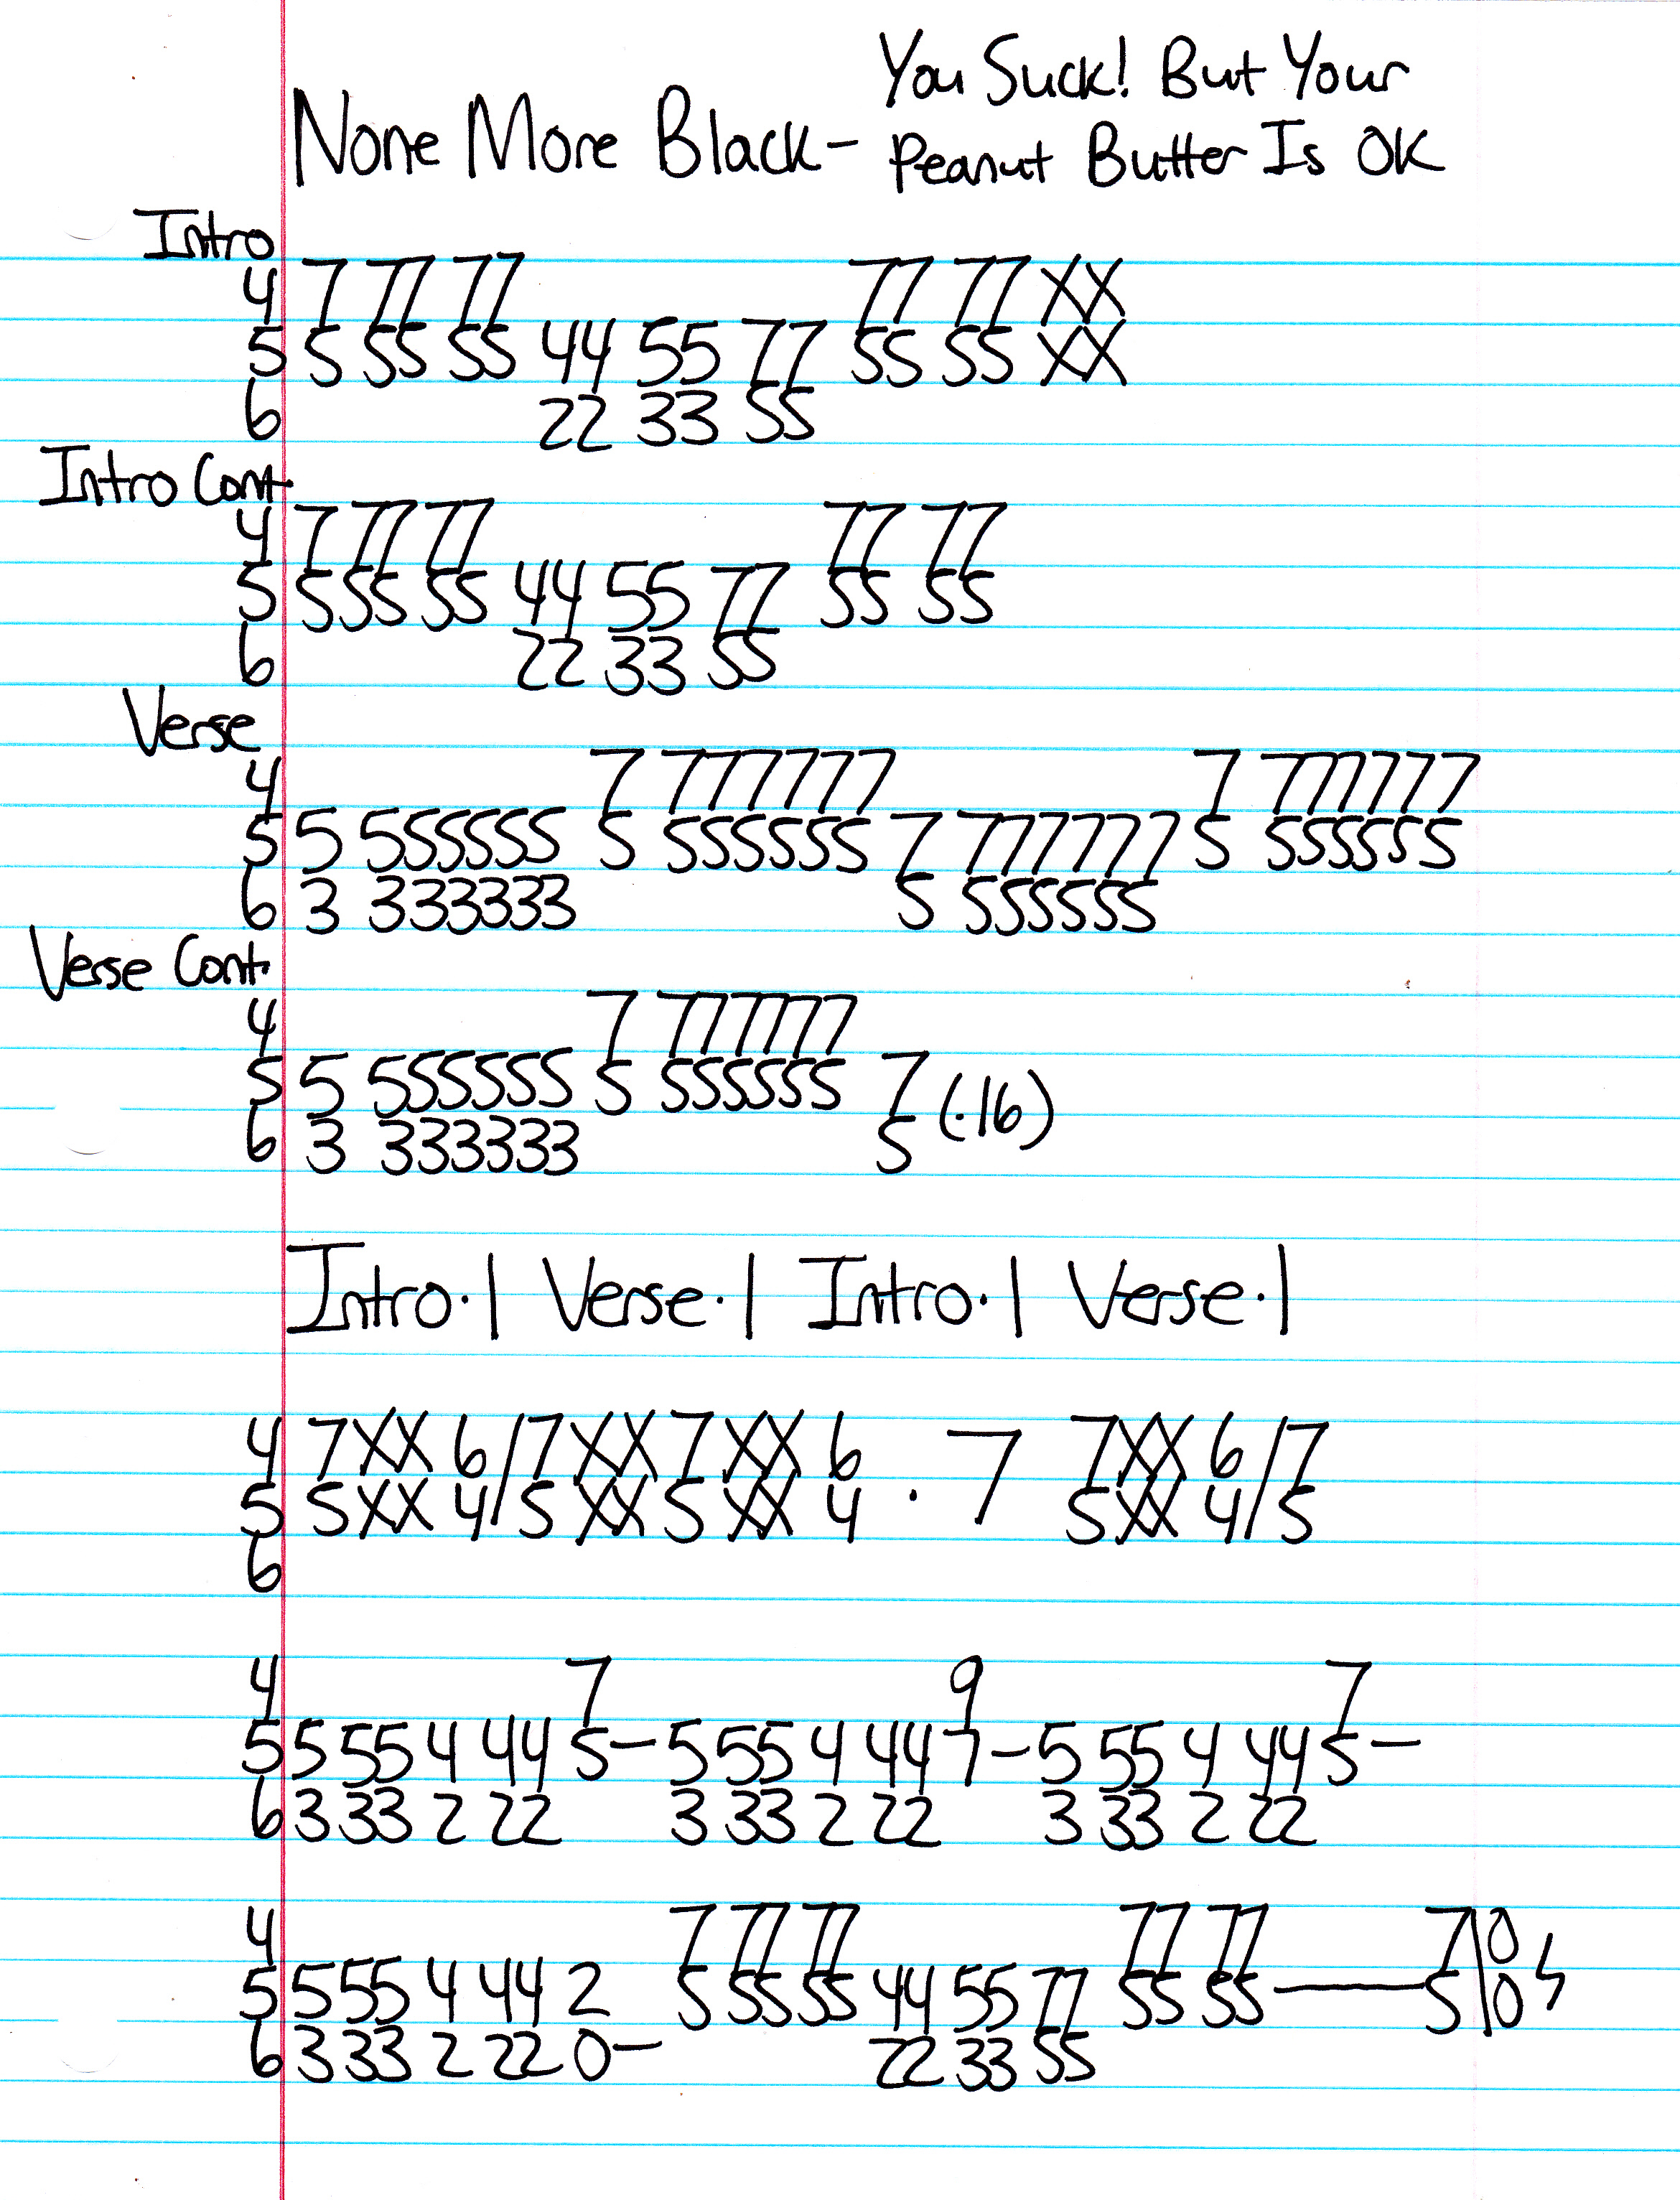 You Suck! But Your
None More Black- Peanut Butter Is OK
Intro
4 7 77 77 77 77 XX
5 5 55 55 44 55 77 55 55 XX
6 22 33 55
Intro Cont.
4 7 77 77 77 77
5 5 55 55 44 55 77 55 55
6 22 33 55
Verse
4 7 777777 7 777777
5 5 555555 5 555555 7 777777 5 555555
6 3 333333 5 555555
Verse Cont.
4 7 777777
5 5 555555 5 555555 7 (·16)
6 3 333333 5
Intro·| Verse·| Intro·| Verse·|
4 7XX 6/7XX 7 XX 6 7XX 6/7
5 5XX 4/5 XX 5 XX 4 · 7 5XX 4/5
6
4 7 9 7
5 5 55 4 44 5- 5 55 4 44 7- 5 55 4 44 5-
6 3 33 2 22 3 33 2 22 3 33 2 22
4 7 77 77 77 77 7|0
5 5 55 4 44 2 5 55 55 44 55 77 55 55 — 5|0
6 3 33 2 22 0- 22 33 55